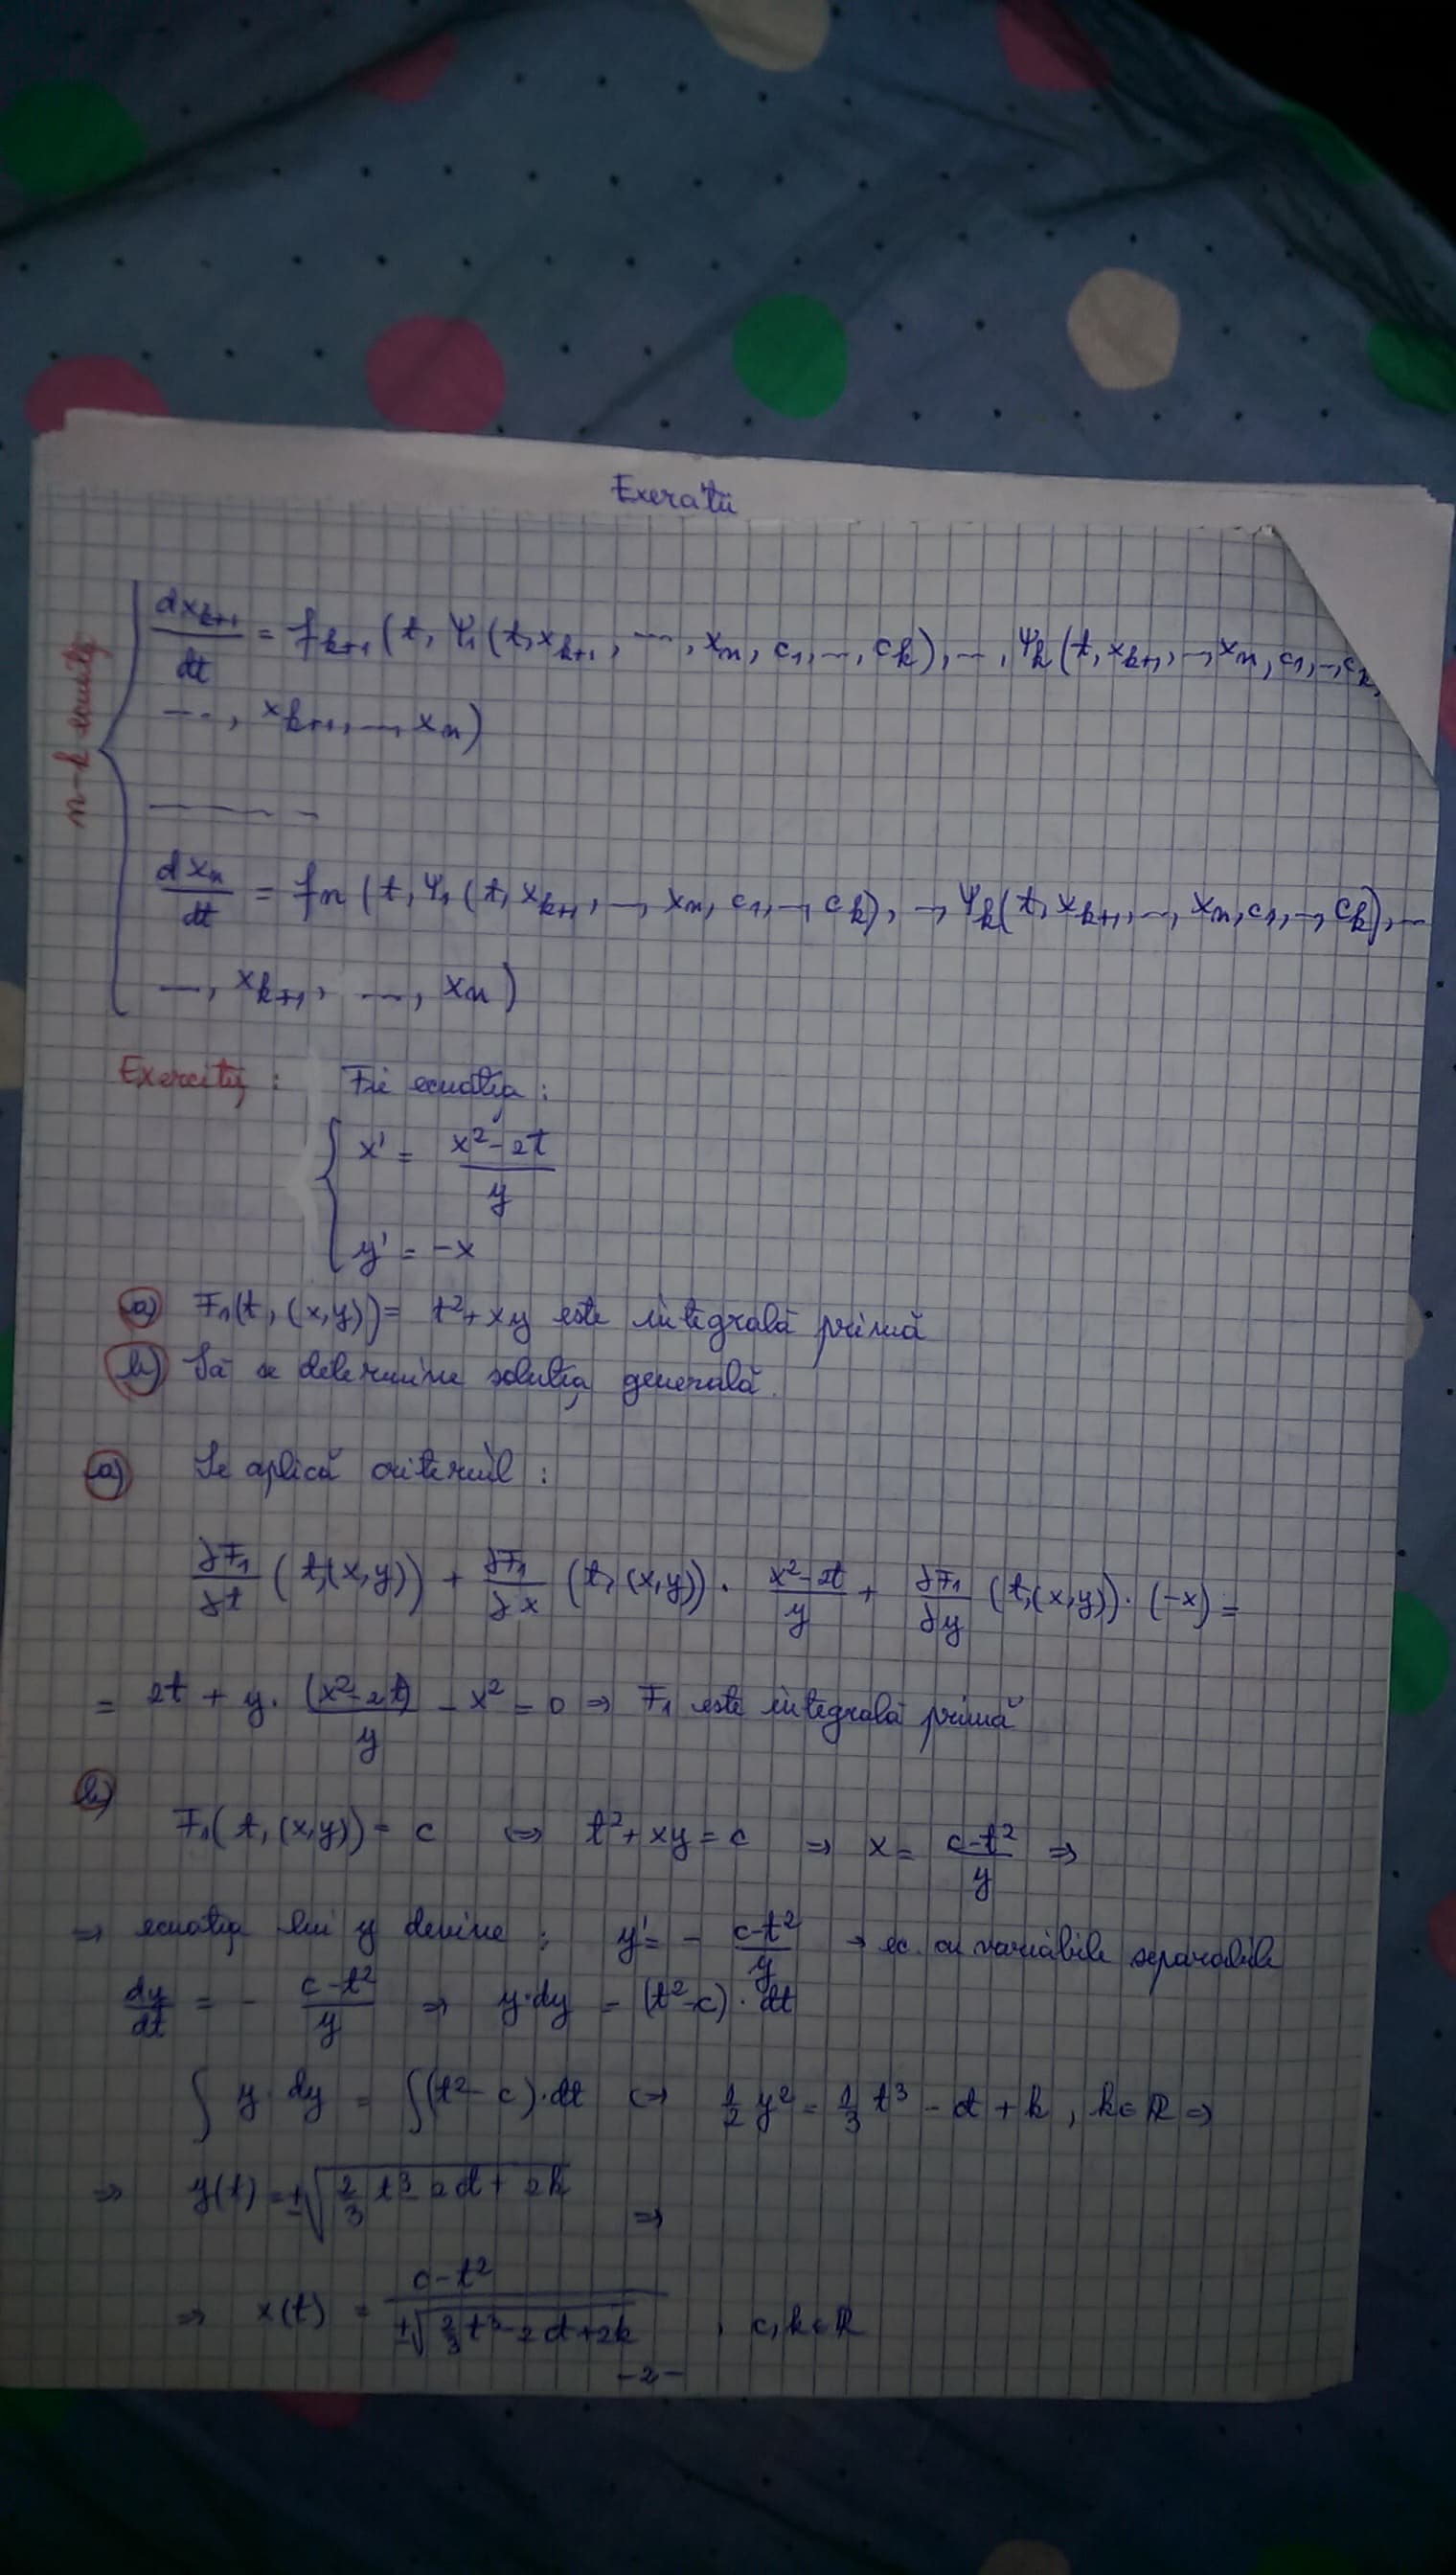 Exerciții
n-k ecuații
dx_{k+1}/dt = f_{k+1}(t, Ψ_1(t, x_{k+1}, ..., x_n, c_1, ..., c_k), ..., Ψ_k(t, x_{k+1}, ..., x_n, c_1, ..., c_k,
..., x_{k+1}, ..., x_n)
— — — —
dx_n/dt = f_n(t, Ψ_1(t, x_{k+1}, ..., x_n, c_1, ..., c_k), ..., Ψ_k(t, x_{k+1}, ..., x_n, c_1, ..., c_k), ...
..., x_{k+1}, ..., x_n)
Exercițiu: Fie ecuația:
x' = (x²-2t)/y
y' = -x
a) F_1(t,(x,y)) = t²+xy este integrală primă
b) Să se determine soluția generală.
a) Se aplică criteriul:
∂F_1/∂t (t,(x,y)) + ∂F_1/∂x (t,(x,y)) · (x²-2t)/y + ∂F_1/∂y (t,(x,y)) · (-x) =
= 2t + y · (x²-2t)/y - x² = 0 ⇒ F_1 este integrală primă
b)
F_1(t,(x,y)) = c ⇔ t²+xy = c ⇒ x = (c-t²)/y ⇒
⇒ ecuația lui y devine: y' = - (c-t²)/y → ec. cu variabile separabile
dy/dt = - (c-t²)/y ⇒ y·dy = (t²-c)·dt
∫ y·dy = ∫(t²-c)·dt ⇔ 1/2 y² = 1/3 t³ - ct + k, k∈ℝ ⇒
⇒ y(t) = ±√(2/3 t³ - 2ct + 2k) ⇒
⇒ x(t) = (c-t²)/(±√(2/3 t³ - 2ct + 2k)), c,k∈ℝ
-2-